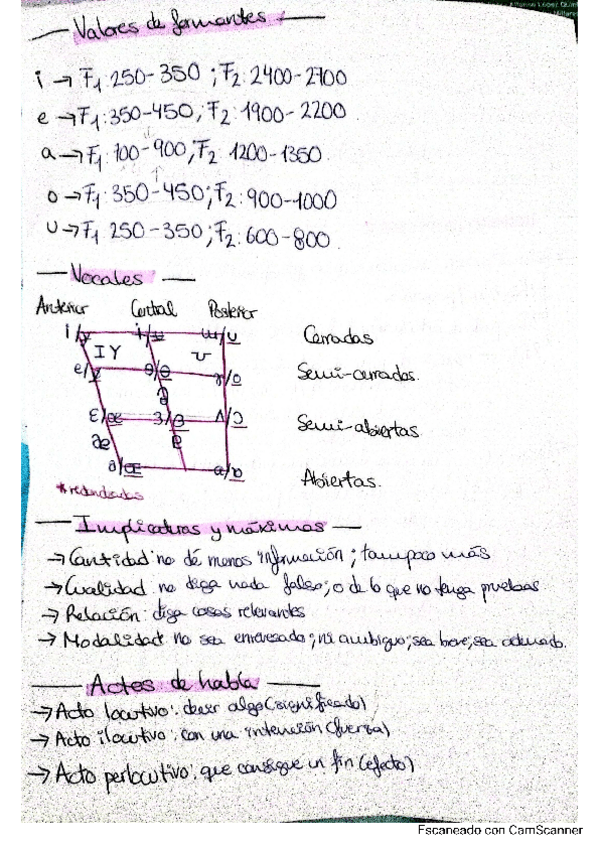 Alfonso López Quin
Valores de formantes
i → F1: 250-350; F2: 2400-2700
e → F1: 350-450; F2: 1900-2200
a → F1: 700-900; F2 1200-1350
o → F1: 350-450; F2: 900-1000
u → F1 250-350; F2: 600-800
Vocales
Anterior Central Posterior
i/y ɨ/ʉ ɯ/u Cerradas
I Y ʊ
e/ø ɘ/ɵ ɤ/o Semi-cerradas.
ə
ɛ/œ ɜ/ɞ ʌ/ɔ Semi-abiertas
æ ɐ
a/ɶ ɑ/ɒ Abiertas.
*redondeadas
Implicaturas y máximas
→ Cantidad: no dé menos información; tampoco más
→ Cualidad: no diga nada falso; o de lo que no tenga pruebas
→ Relación: diga cosas relevantes
→ Modalidad: no sea enrevesado; ni ambiguo; sea breve; sea ordenado.
Actos de habla
→ Acto locutivo: decir algo (significado)
→ Acto ilocutivo: con una intención (fuerza)
→ Acto perlocutivo: que consigue un fin (efecto)
Escaneado con CamScanner